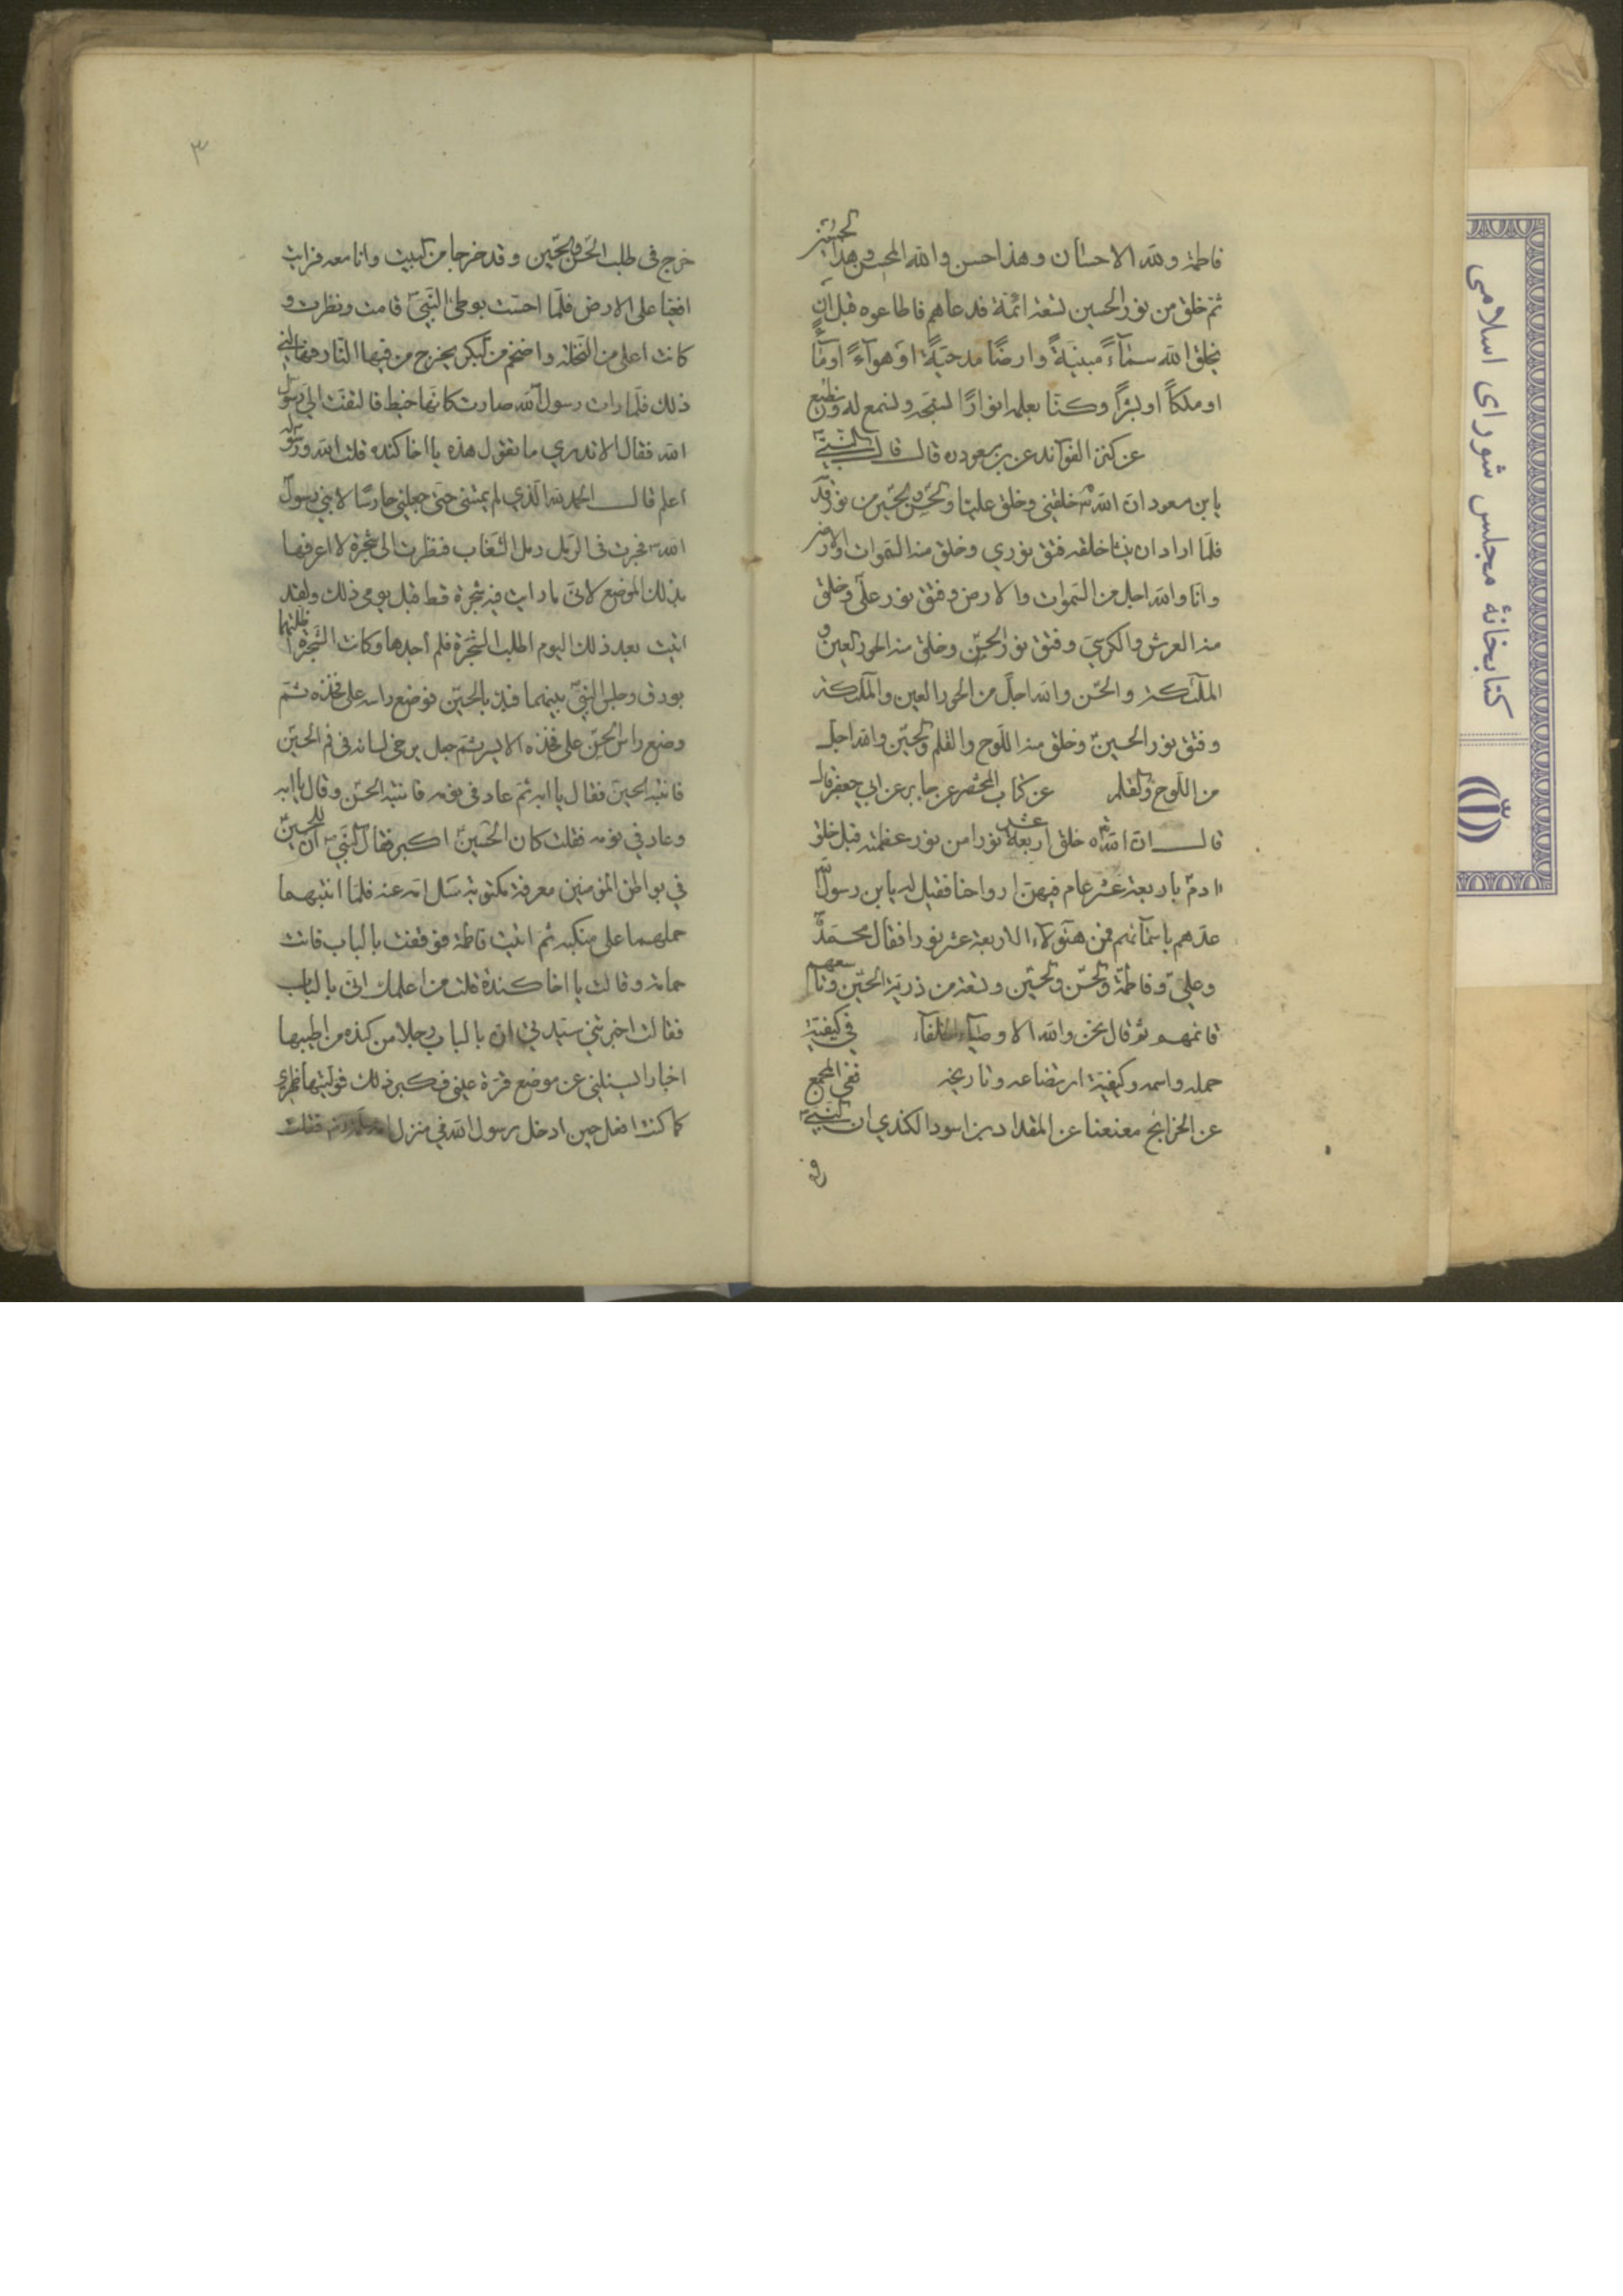 فاطمة ولله الاحسان وهذا حسن والله المحسن وهذا الحسين
ثم خلق من نور الحسين تسعة ائمة فدعاهم فاطاعوه قبل ان
يخلق الله سماءً مبنيةً وارضًا مدحيةً او هواءً او ماءً
او ملكاً او بشراً وكنا بعلمه انوارًا نسبحه ونسمع له ونطيع
عن كنز الفوائد عن بن مسعود قال قال النبي
يابن مسعود ان الله خلقني وخلق عليا والحسن والحسين من نور قد
فلما اراد ان ينشأ خلقه فتق نوري وخلق منه السموات والارض
وانا والله اجل من السموات والارض وفتق نور علي وخلق
منه العرش والكرسي وفتق نور الحسن وخلق منه الحور العين و
الملئكة والحسن والله اجل من الحور العين والملئكة
وفتق نور الحسين وخلق منه اللوح والقلم والحسين والله اجل
من اللوح والقلم عن كتاب المحتضر عن جابر عن ابي جعفر قال
قال ان الله خلق اربعة عشر نورا من نور عظمته قبل خلق
ادم باربعة عشر عام فهي ارواحنا فقيل له يابن رسول الله
عدهم باسمائهم فمن هؤلاء الاربعة عشر نورا فقال محمد
وعلي وفاطمة والحسن والحسين وتسعة من ذرية الحسين وتاسعهم
قائمهم ثم قال نحن والله الاوصياء الخلفاء في كيفية
حمله واسمه وكيفية ارتضاعه وتاريخه ففي المجمع
عن الخرايج معنعنا عن المقداد بن اسود الكندي ان النبي
٣
خرج في طلب الحسن والحسين وقد خرجا من البيت وانا معه فرايت
افعيا على الارض فلما احست بوطئ النبي قامت ونظرت و
كانت اعلى من النخلة واضخم من البكر يخرج من فيها النار فهالني
ذلك فلما رات رسول الله صارت كانها خيط فالتفت الي رسول
الله فقال الا تدري ما تقول هذه يا اخا كنده قلت الله ورسوله
اعلم قال الحمد لله الذي لم يمتني حتى جعلني حارسًا لابني رسول
الله فجرت في الرمل رمل الشغاب فنظرت الى شجرة لا اعرفها
بذلك الموضع لاني ما رايت فيه شجرة قط قبل يومي ذلك ولقد
اتيت بعد ذلك اليوم اطلب الشجرة فلم اجدها وكانت الشجرة اظلتهما
بورق وجلس النبي بينهما فبدا بالحسين فوضع راسه على فخذه ثم
وضع راس الحسن على فخذه الايسر ثم جعل يرخي لسانه في فم الحسين
فانتبه الحسين فقال يا ابه ثم عاد في نومه فانتبه الحسن وقال يا ابه
وعاد في نومه فقلت كان الحسين اكبر فقال النبي ان للحسين
في بواطن المؤمنين معرفة مكتومة سل امه عنه فلما انتبهما
حملهما على منكبه ثم اتيت فاطمة فوقفت بالباب فاتت
حمامة وقالت يا اخا كندة قلت من اعلمك اني بالباب
فقالت اخبرتني سيدتي ان بالباب رجلا من كنده من اطيبها
اخبارا يسئلني عن موضع قرة عيني فكبر ذلك فوليتها ظهري
كما كنت افعل حين ادخل رسول الله في منزل ام سلمة فقلت
كتابخانهٔ مجلس شورای اسلامی